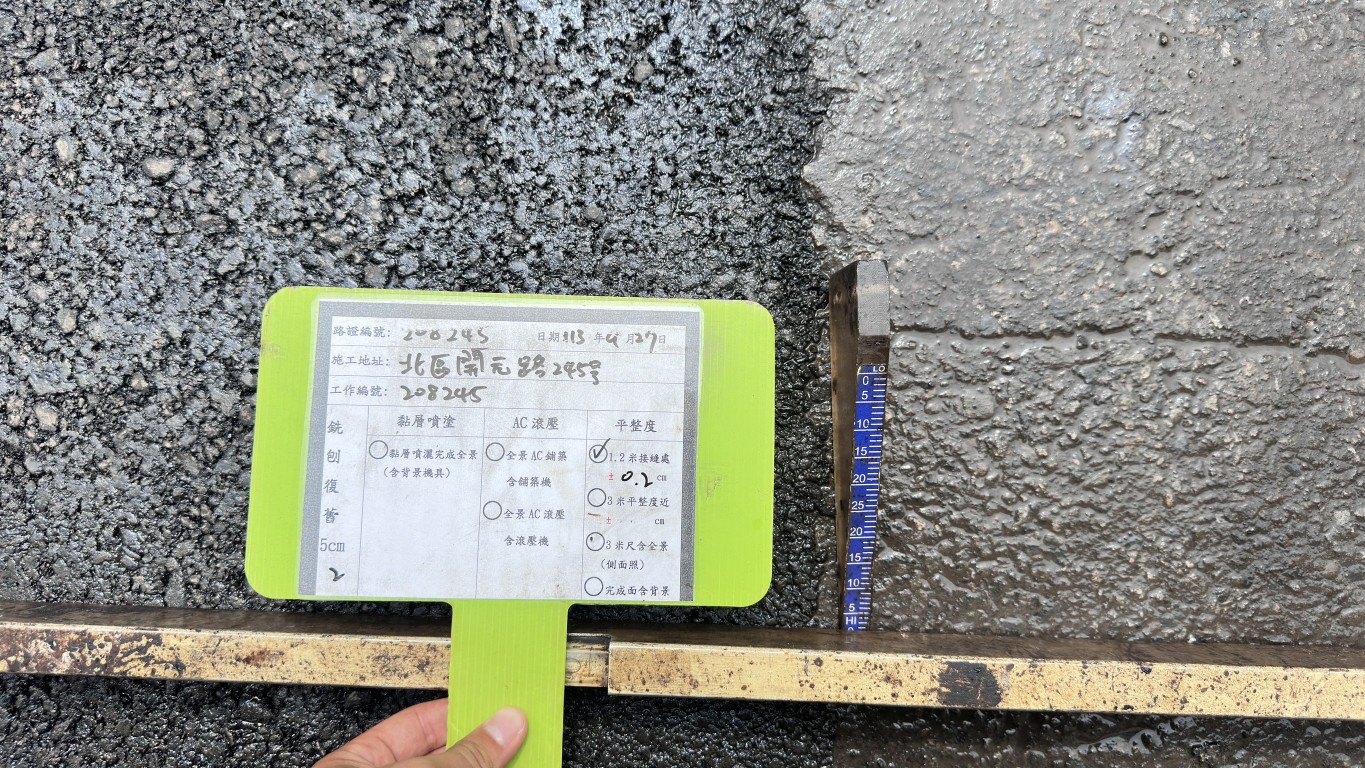 路證編號: 208245 日期 113 年 9 月 27 日
施工地址: 北區開元路245号
工作編號: 208245
銑刨復舊 5cm 2
黏層噴塗
黏層噴灑完成全景
(含背景機具)
AC 滾壓
全景 AC 鋪築
含鋪築機
全景 AC 滾壓
含滾壓機
平整度
✓ 1.2 米接縫處
± 0.2 cm
3 米平整度近
± cm
3 米尺含全景
(側面照)
完成面含背景
LO
0
5
10
15
20
25
20
15
10
5
HI